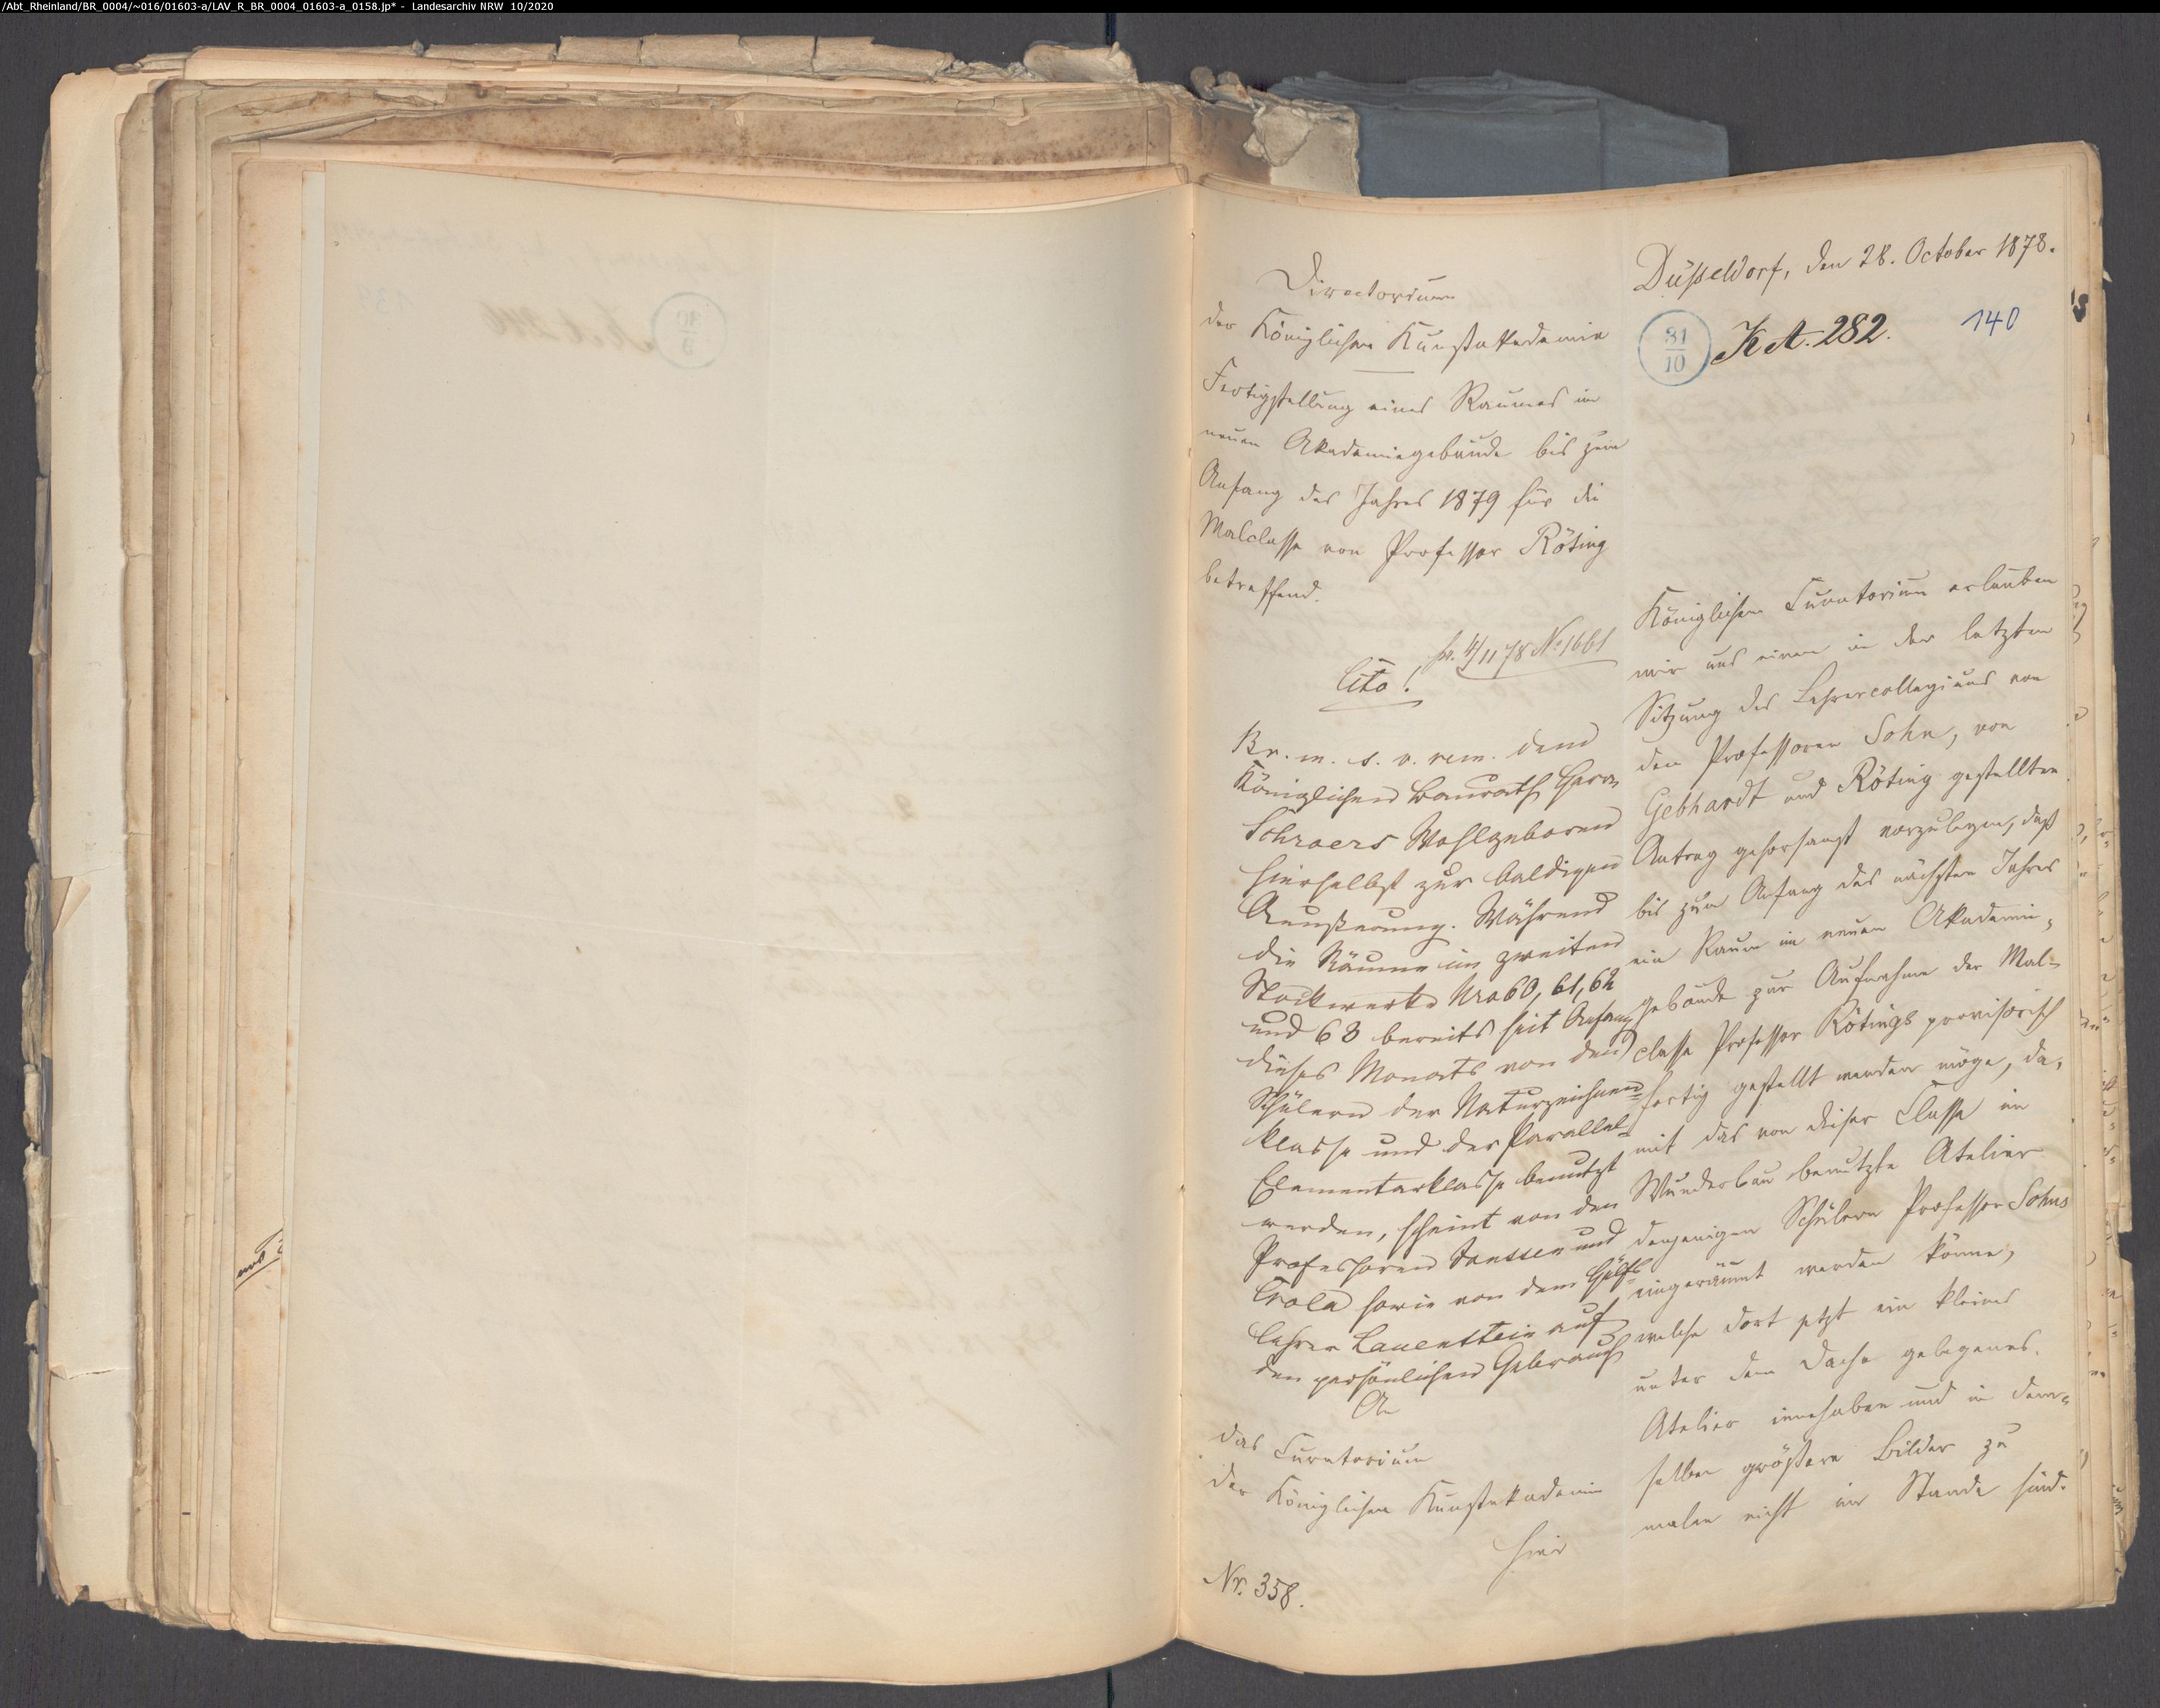 /Abt_Rheinland/BR_0004/~016/01603-a/LAV_R_BR_0004_01603-a_0158.jp* - Landesarchiv NRW 10/2020
Directorium
der Königlichen Kunstakademie
Fertigstellung eines Raumes im
neuen Akademiegebäude bis zum
Anfang des Jahres 1879 für die
Malclasse von Professor Röting
betreffend.
pr. 4/11 78 No 1661
Cito!
Br. m. s. v. rem. dem
Königlichen Baurath Herrn
Schroers Wohlgeboren
hierselbst zur baldigen
Aeußerung. Während
die Räume im zweiten
Stockwerke Nro 60, 61, 62
und 63 bereits seit Anfang
dieses Monats von den
Schülern der Naturzeichnen=
klasse und der Parallel=
Elementarklasse benutzt
werden, scheint von den
Professoren Janssen und
Crola sowie von dem Hülfs=
lehrer Lauenstein auf
den persönlichen Gebrauch
An
das Curatorium
der Königlichen Kunstakademie
hier
Nr. 358.
Düsseldorf, den 28. October 1878.
31/10
K A. 282.
140
Königlichem Curatorium erlauben
wir uns einen in der letzten
Sitzung des Lehrercollegiums von
den Professoren Sohn, von
Gebhardt und Röting gestellten
Antrag gehorsamst vorzulegen, daß
bis zum Anfang des nächsten Jahres
ein Raum im neuen Akademie=
gebäude zur Aufnahme der Mal=
classe Professor Rötings provisorisch
fertig gestellt werden möge, da=
mit das von dieser Classe im
Wunderbau benutzte Atelier
denjenigen Schülern Professor Sohns
eingeräumt werden könne,
welche dort jetzt ein kleines
unter dem Dache gelegenes
Atelier innehaben und in dem=
selben größere Bilder zu
malen nicht im Stande sind.